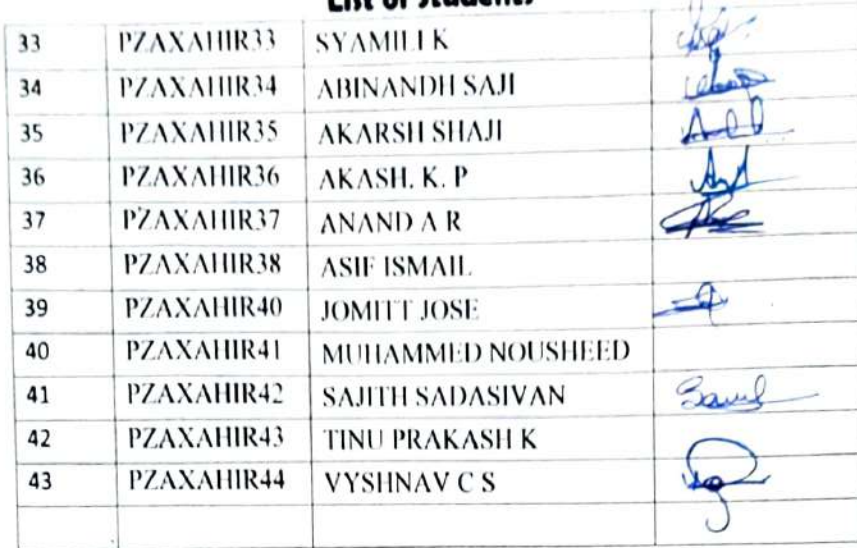 List of Students
33 PZAXAHIR33 SYAMILI K
34 PZAXAHIR34 ABINANDH SAJI
35 PZAXAHIR35 AKARSH SHAJI
36 PZAXAHIR36 AKASH. K. P
37 PZAXAHIR37 ANAND A R
38 PZAXAHIR38 ASIF ISMAIL
39 PZAXAHIR40 JOMITT JOSE
40 PZAXAHIR41 MUHAMMED NOUSHEED
41 PZAXAHIR42 SAJITH SADASIVAN
42 PZAXAHIR43 TINU PRAKASH K
43 PZAXAHIR44 VYSHNAV C S